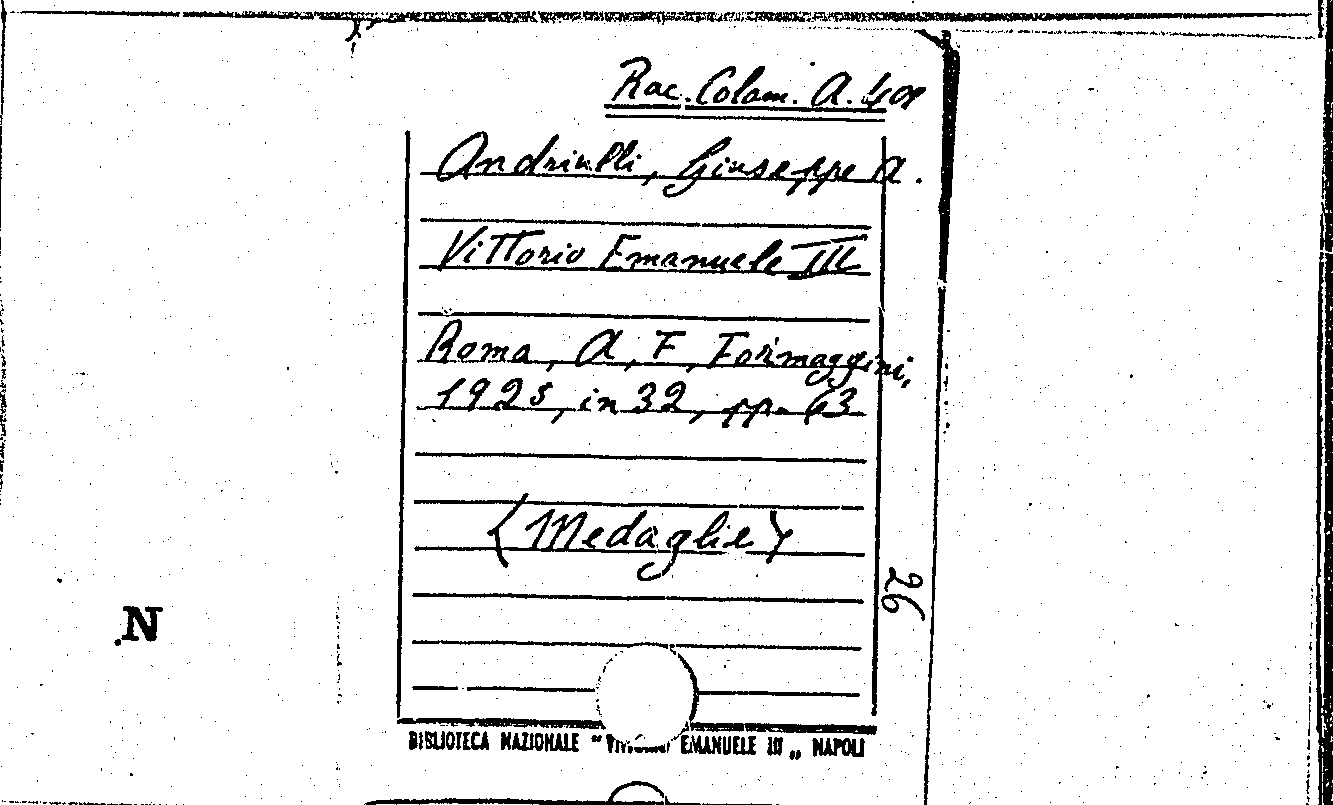 Rac. Colam. A. 409
Andriulli, Giuseppe A.
Vittorio Emanuele III
Roma, A. F. Formaggini,
1925, in 32, pp. 63
(Medaglie)
26
N
BIBLIOTECA NAZIONALE " EMANUELE III „ NAPOLI